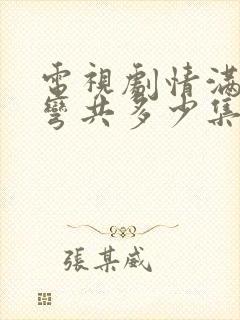 電視劇情滿
彎共多少集
張某威